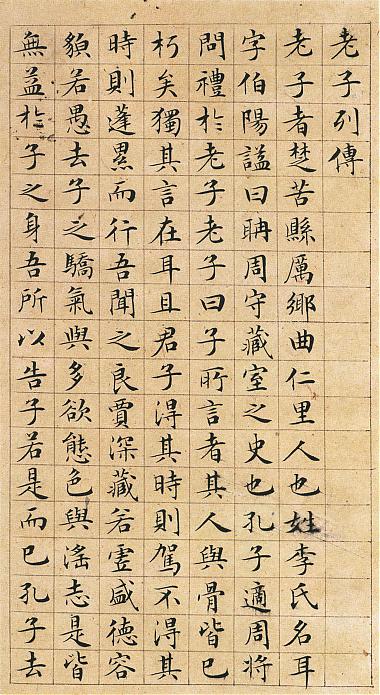 老子列傳
老子者楚苦縣厲鄉曲仁里人也姓李氏名耳
字伯陽謚曰耼周守藏室之史也孔子適周將
問禮於老子老子曰子所言者其人與骨皆已
朽矣獨其言在耳且君子得其時則駕不得其
時則蓬累而行吾聞之良賈深藏若虛盛德容
䫉若愚去子之驕氣與多欲態色與滛志是皆
無益於子之身吾所以告子若是而已孔子去